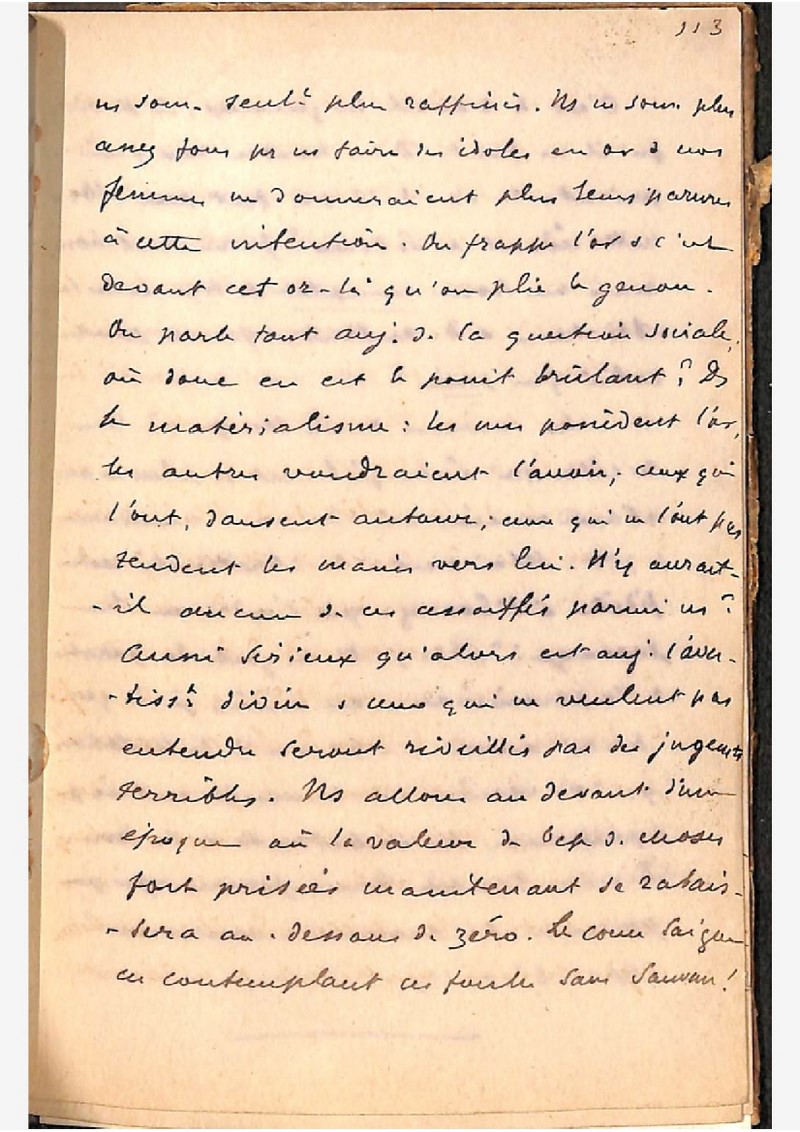 113
ns som. seulᵗ plus raffinés. Ns ne som. plus
assez fous pr ns faire des idoles en or & nos
femmes ne donneraient plus leurs parures
à cette intention. On frappe l'or & c'est
devant cet or-là qu'on plie le genou.
On parle tant auj. d. la question sociale,
où donc en est le point brûlant? Ds
le matérialisme: les uns possèdent l'or,
les autres voudraient l'avoir; ceux qui
l'ont, dansent autour; ceux qui ne l'ont pas
tendent les mains vers lui. N'y aurait-
-il aucun de ces assoiffés parmi ns?
Aussi sérieux qu'alors est auj. l'aver-
-tissᵗ divin & ceux qui ne veulent pas
entendre seront réveillés par des jugements
terribles. Ns allons au devant d'une
époque où la valeur de bcp d. choses
fort prisées maintenant se rabais-
-sera au-dessous de zéro. Le coeur saigne
en contemplant ces foules sans Sauveur!